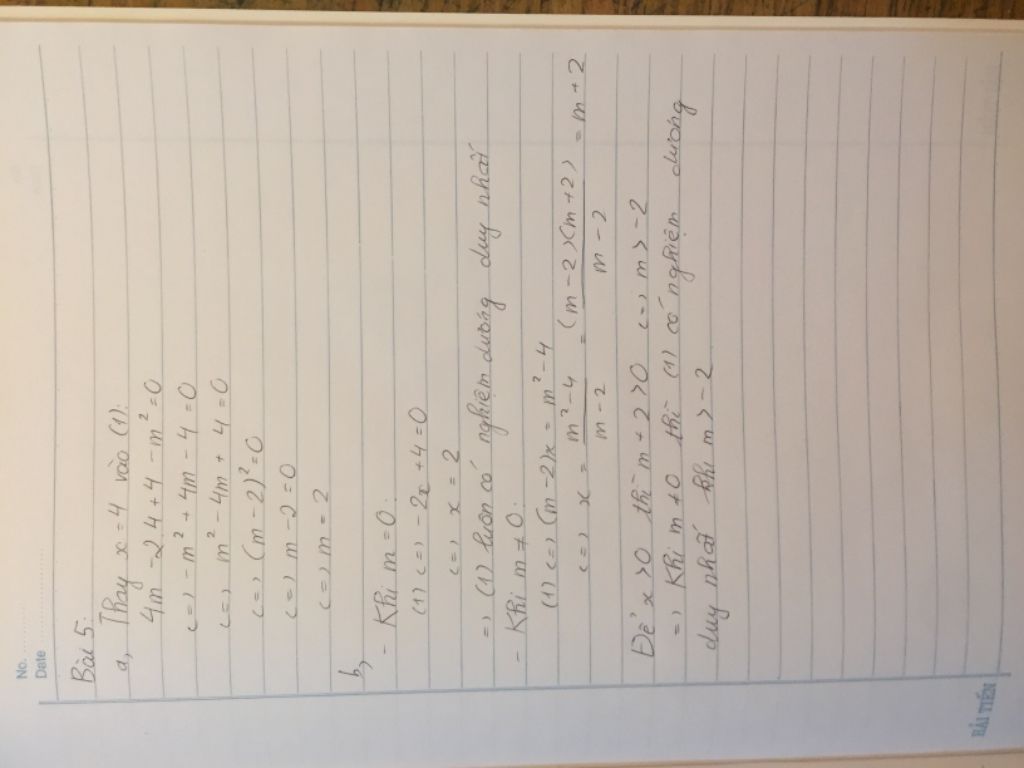 No. ..........
Date ..........
Bài 5:
a, Thay x = 4 vào (1):
4m - 2.4 + 4 - m² = 0
<=> -m² + 4m - 4 = 0
<=> m² - 4m + 4 = 0
<=> (m - 2)² = 0
<=> m - 2 = 0
<=> m = 2
b,
- Khi m = 0:
(1) <=> -2x + 4 = 0
<=> x = 2
=> (1) luôn có nghiệm dương duy nhất
- Khi m ≠ 0:
(1) <=> (m - 2)x = m² - 4
<=> x = (m² - 4)/(m - 2) = (m - 2)(m + 2)/(m - 2) = m + 2
Để x > 0 thì m + 2 > 0 <=> m > -2
=> Khi m ≠ 0 thì (1) có nghiệm dương
duy nhất khi m > -2
HẢI TIẾN